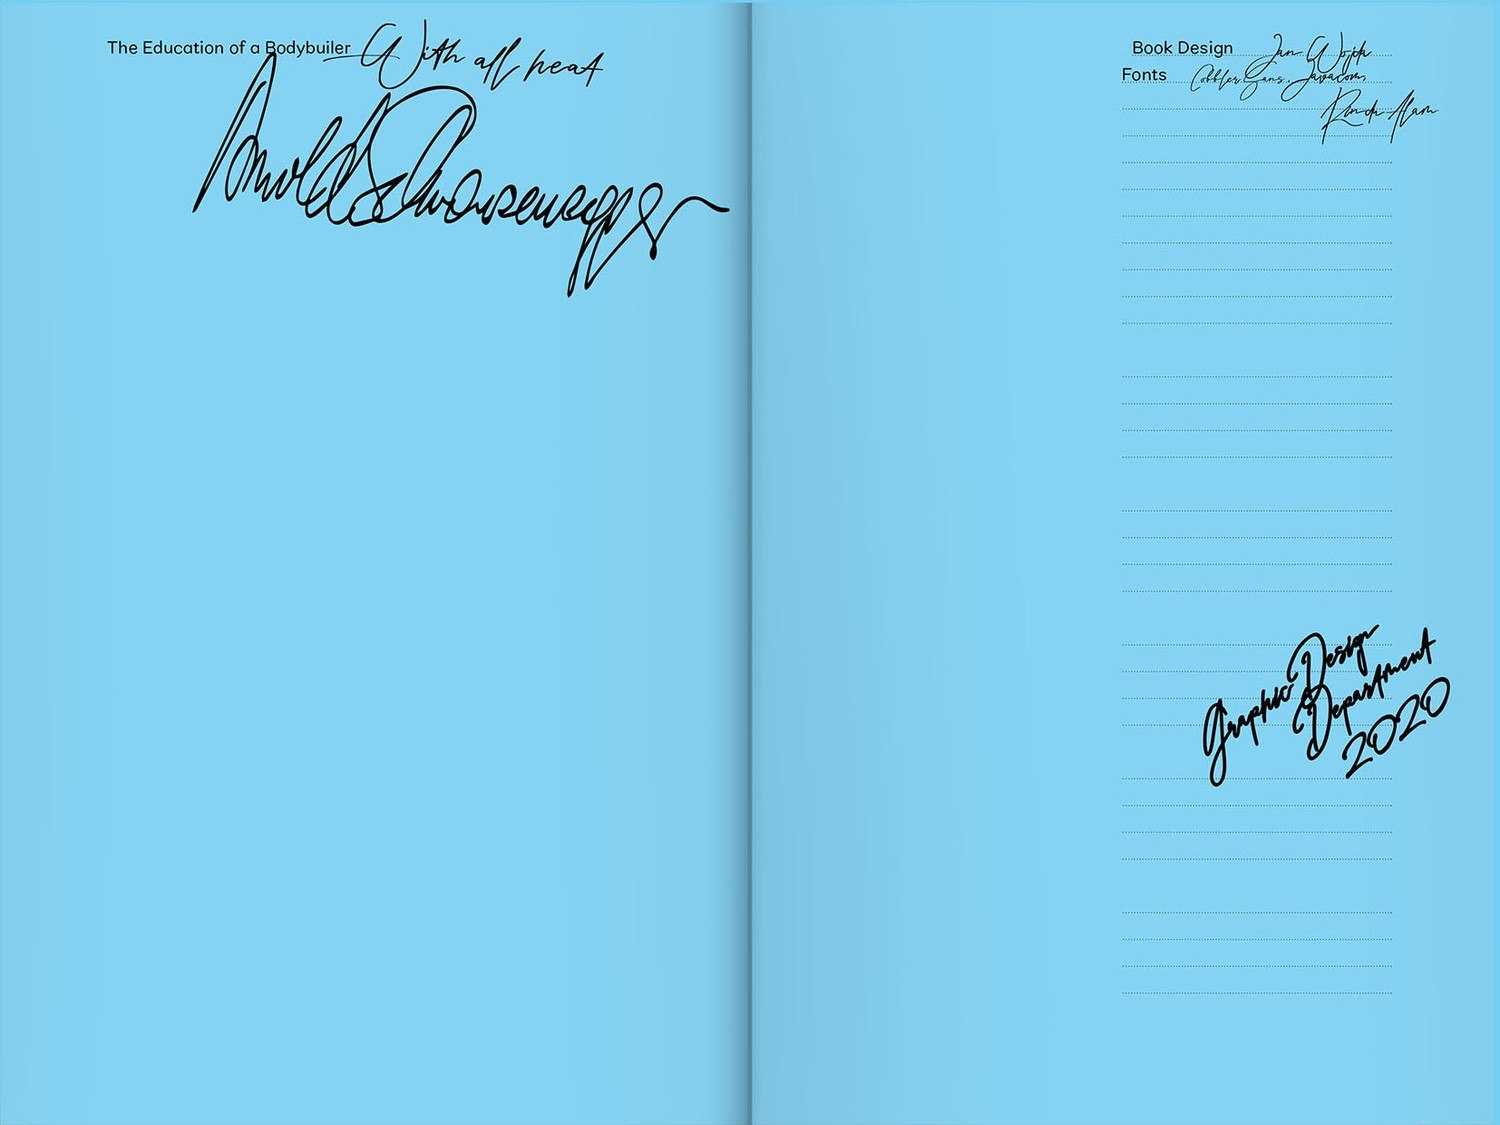 The Education of a Bodybuiler With all heat
Arnold Schwarzenegger
Book Design Jan Wojda
Fonts Cobbler Sans, Javacom,
Rinda Alam
Graphic Design
Department
2020